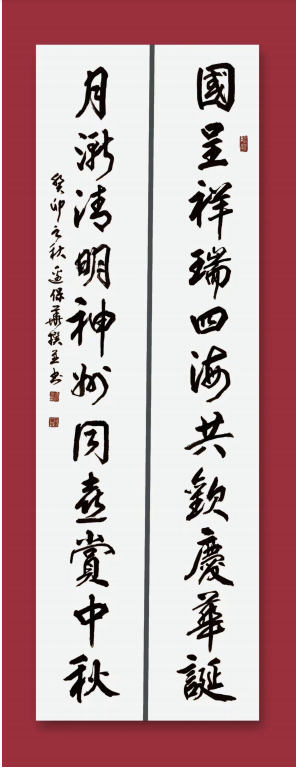 國呈祥瑞四海共歡慶華誕
月漸清明神州同喜賞中秋
癸卯之秋 保華撰並書